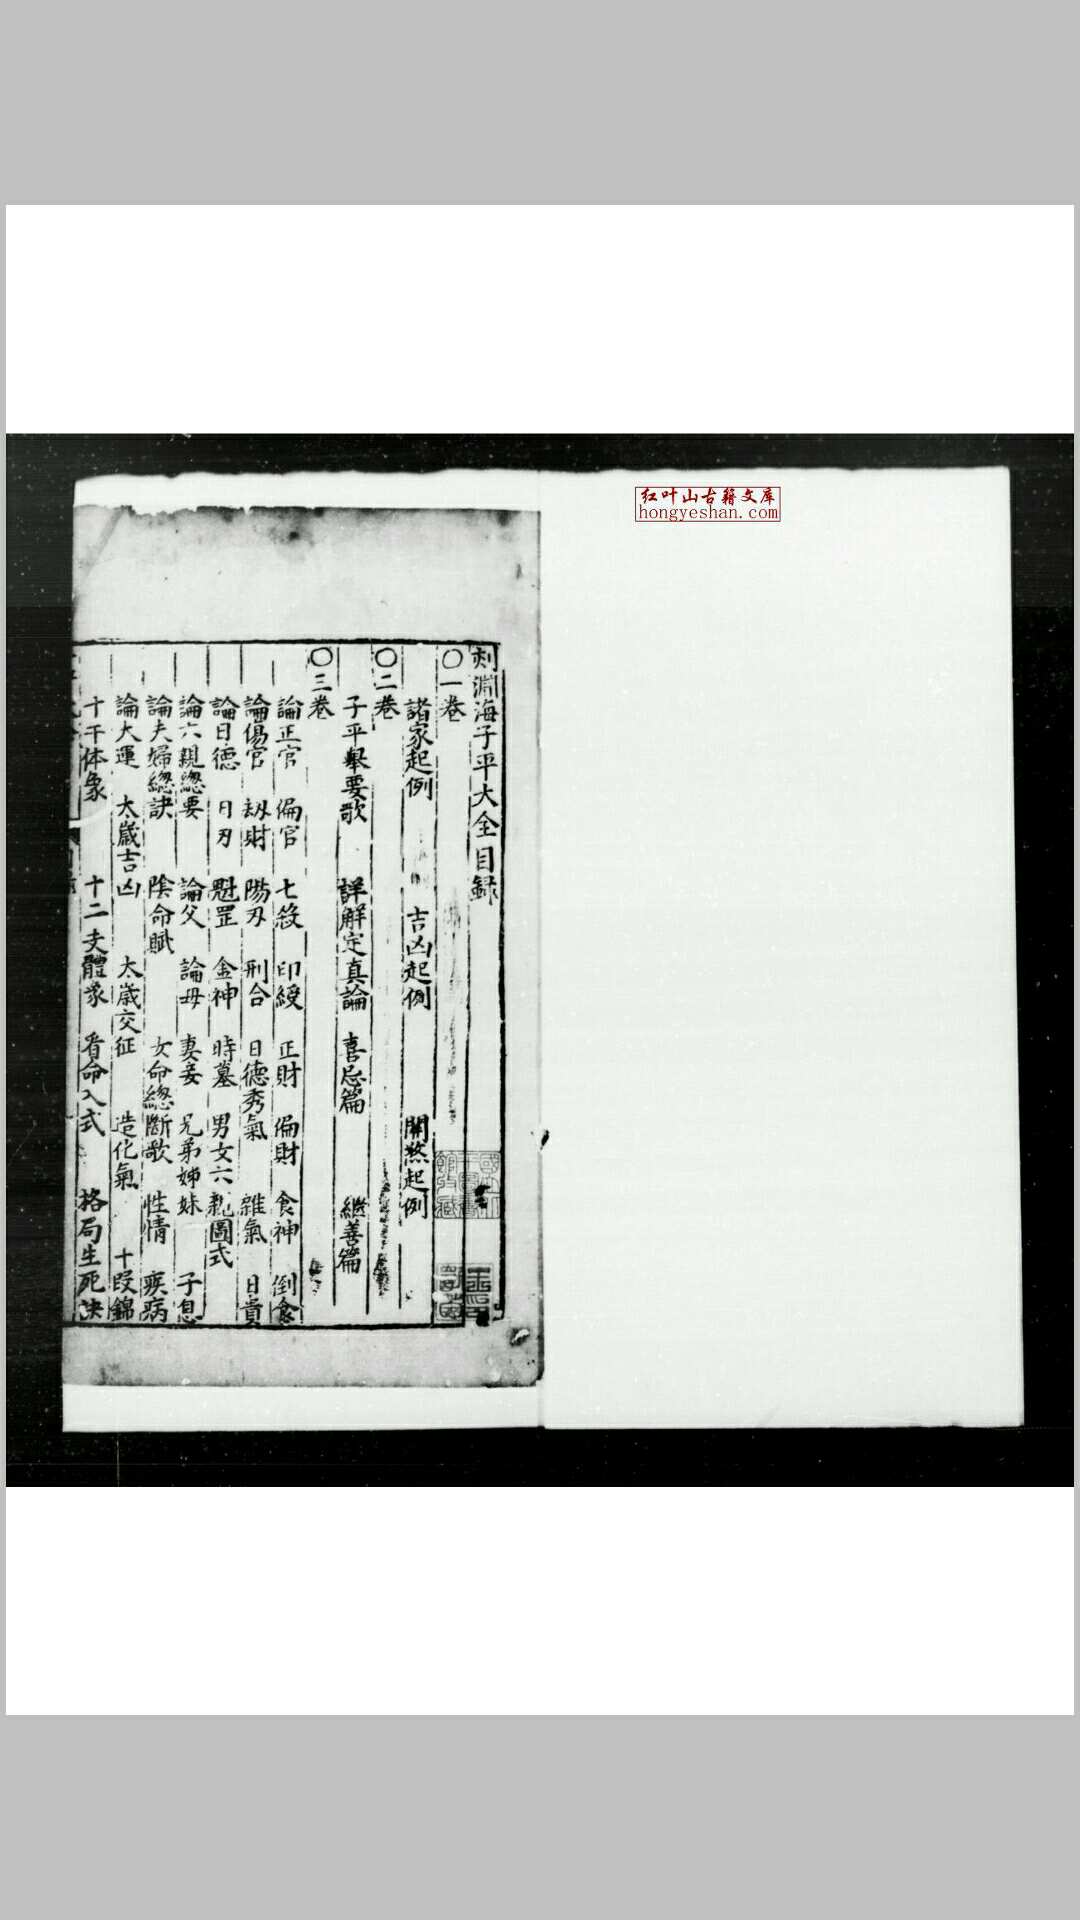 红叶山古籍文库
hongyeshan.com
刻淵海子平大全目録
〇一巻
諸家起例 吉凶起例 關煞起例
〇二巻
子平舉要歌 詳解定真論 喜忌篇 繼善篇
〇三巻
論正官 偏官 七殺 印綬 正財 偏財 食神 倒食
論傷官 刼財 陽刃 刑合 日德秀氣 雜氣 日貴
論日德 日刃 魁罡 金神 時墓 男女六親圖式
論六親總要 論父 論母 妻妾 兄弟姊妹 子息
論夫婦總訣 陰命賦 女命總斷歌 性情 疾病
論大運 太歲吉凶 太歲交征 造化氣 十叚錦
十干体象 十二支體象 看命入式 格局生死决